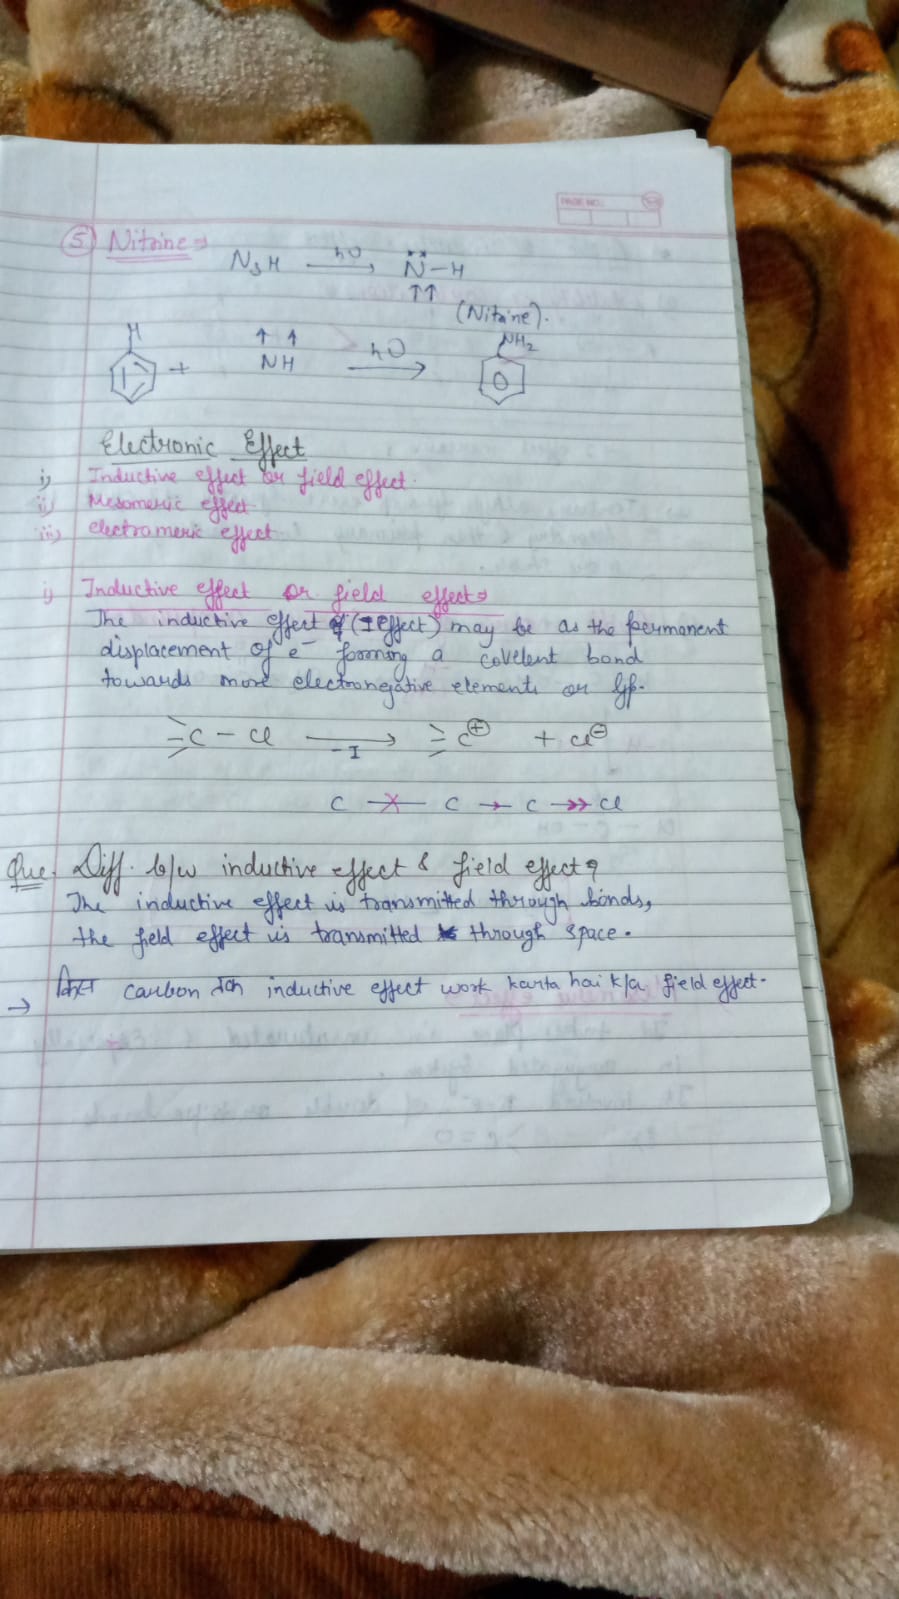 PAGE NO.:
⑤ Nitrine ⇒
N₃H hυ → N̈ – H
↑↑
(Nitrine).
H
+ ↑ ↑ NH hυ → NH₂
Electronic Effect
i) Inductive effect or field effect.
ii) Mesomeric effect
iii) electromeric effect
i) Inductive effect or field effect ⇒
The inductive effect (I effect) may be as the permanent
displacement of e⁻ forming a covelent bond
towards more electronegative elements or gp.
C – Cl –I → C⊕ + Cl⊖
C C → C →→ Cl
Que. Diff. b/w inductive effect & field effect?
The inductive effect is transmitted through bonds,
the field effect is transmitted through space.
→ किस carbon तक inductive effect work karta hai k/a field effect.